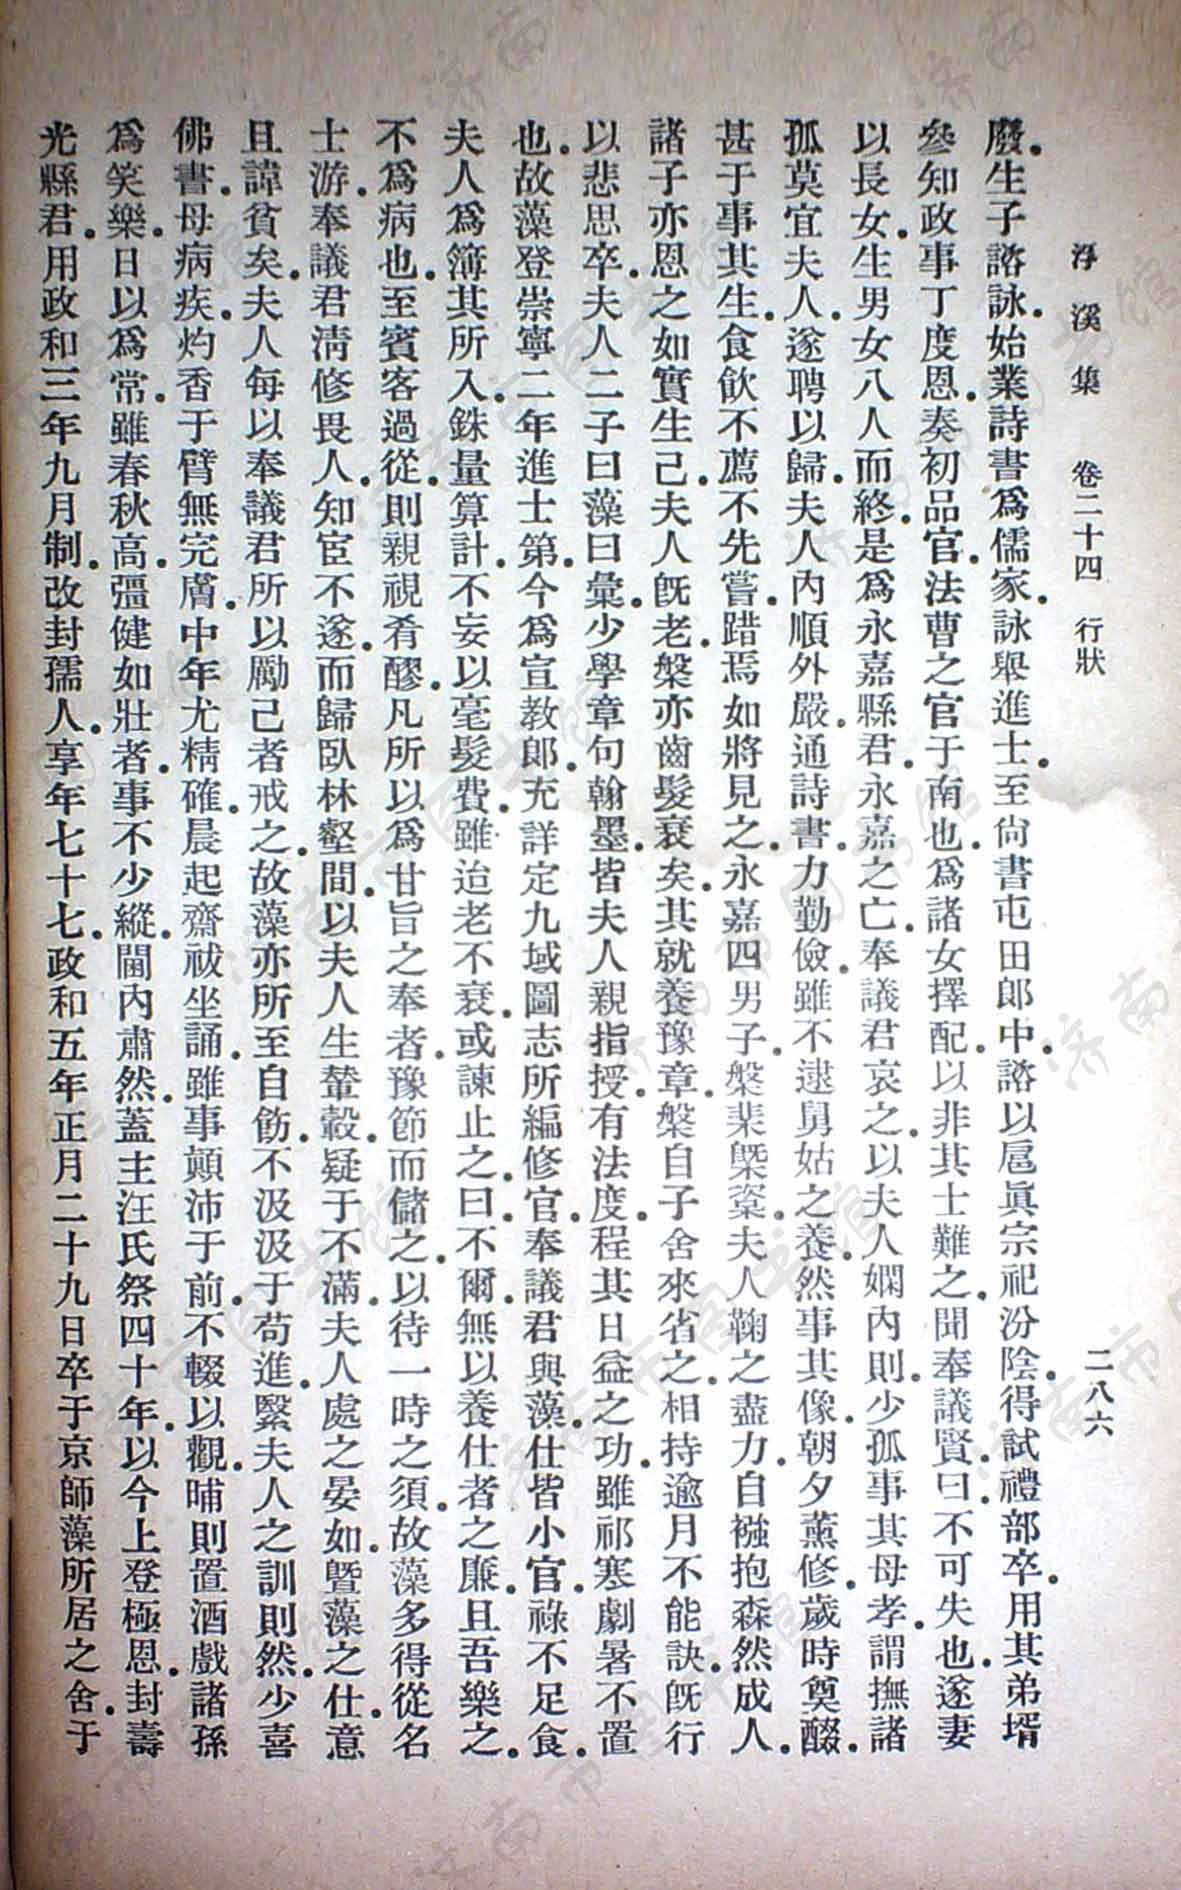 浮溪集 卷二十四 行狀 二八六
廢。生子諮詠。始業詩書爲儒家。詠舉進士。至尚書屯田郎中。諮以扈眞宗祀汾陰。得試禮部卒。用其弟壻
參知政事丁度恩。奏初品官。法曹之官于南也。爲諸女擇配。以非其士難之。聞奉議賢。曰。不可失也。遂妻
以長女。生男女八人而終。是爲永嘉縣君。永嘉之亡。奉議君哀之。以夫人嫻內則。少孤事其母孝。謂撫諸
孤莫宜夫人。遂聘以歸。夫人內順外嚴。通詩書。力勤儉。雖不逮舅姑之養。然事其像。朝夕薰修。歲時奠醊。
甚于事其生。食飲不薦不先嘗。踖焉如將見之。永嘉四男子。槃棐槩粢。夫人鞠之盡力。自襁抱森然成人。
諸子亦恩之如實生己。夫人旣老。槃亦齒髮衰矣。其就養豫章。槃自子舍來省之。相持逾月不能訣。旣行
以悲思卒。夫人二子曰藻曰彙。少學章句翰墨。皆夫人親指授。有法度。程其日益之功。雖祁寒劇暑不置
也。故藻登崇寧二年進士第。今爲宣敎郎。充詳定九域圖志所編修官。奉議君與藻仕皆小官。祿不足食。
夫人爲簿其所入。銖量算計。不妄以毫髮費。雖迨老不衰。或諫止之。曰。不爾。無以養仕者之廉。且吾樂之。
不爲病也。至賓客過從。則親視肴醪。凡所以爲甘旨之奉者。豫節而儲之。以待一時之須。故藻多得從名
士游。奉議君淸修畏人。知宦不遂。而歸臥林壑間。以夫人生輦轂。疑于不滿。夫人處之晏如。曁藻之仕。意
且諱貧矣。夫人每以奉議君所以勵己者戒之。故藻亦所至自飭。不汲汲于苟進。繄夫人之訓則然。少喜
佛書。母病疾。灼香于臂無完膚。中年尤精確。晨起齋祓坐誦。雖事顛沛于前。不輟以觀。晡則置酒戲諸孫
爲笑樂。日以爲常。雖春秋高。彊健如壯者。事不少縱。閫內肅然。蓋主汪氏祭四十年。以今上登極恩。封壽
光縣君。用政和三年九月制。改封孺人。享年七十七。政和五年正月二十九日卒于京師藻所居之舍。于